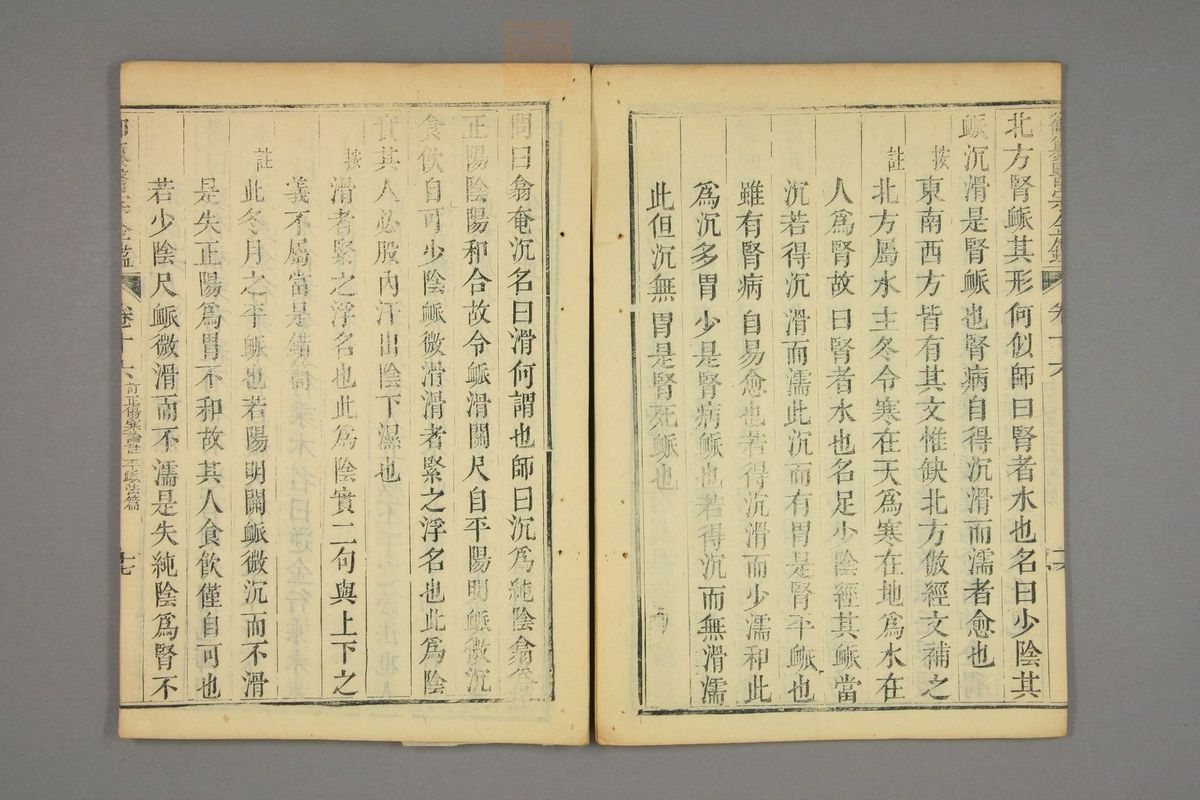 北方腎䘑其形何似師曰腎者水也名曰少陰其
䘑沉滑是腎䘑也腎病自得沉滑而濡者愈也
按東南西方皆有其文惟缺北方倣經文補之
註北方屬水主冬令寒在天爲寒在地爲水在
人爲腎故曰腎者水也名足少陰經其䘑當
沉若得沉滑而濡此沉而有胃是腎平䘑也
雖有腎病自易愈也若得沉滑而少濡和此
爲沉多胃少是腎病䘑也若得沉而無滑濡
此但沉無胃是腎死䘑也
問曰翕奄沉名曰滑何謂也師曰沉爲純陰翕爲
正陽陰陽和合故令䘑滑關尺自平陽明䘑微沉
食飲自可少陰䘑微滑滑者緊之浮名也此爲陰
實其人必股內汗出陰下濕也
按滑者緊之浮名也此爲陰實二句與上下之
義不屬當是錯簡
註此冬月之平䘑也若陽明關䘑微沉而不滑
是失正陽爲胃不和故其人食飲僅自可也
若少陰尺䘑微滑而不濡是失純陰爲腎不
御纂醫宗金鑑 卷十六 訂正傷寒論註 平䘑法篇 十七